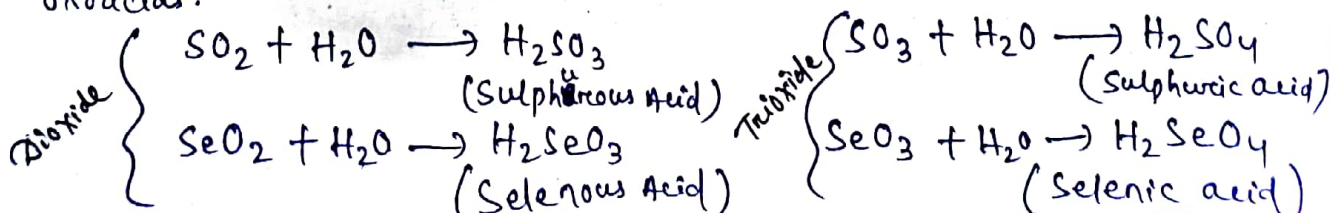 Dioxide { SO₂ + H₂O ⟶ H₂SO₃
(Sulphurous Acid)
SeO₂ + H₂O ⟶ H₂SeO₃
(Selenous Acid)
Trioxide { SO₃ + H₂O ⟶ H₂SO₄
(Sulphuric acid)
SeO₃ + H₂O ⟶ H₂SeO₄
(Selenic acid)